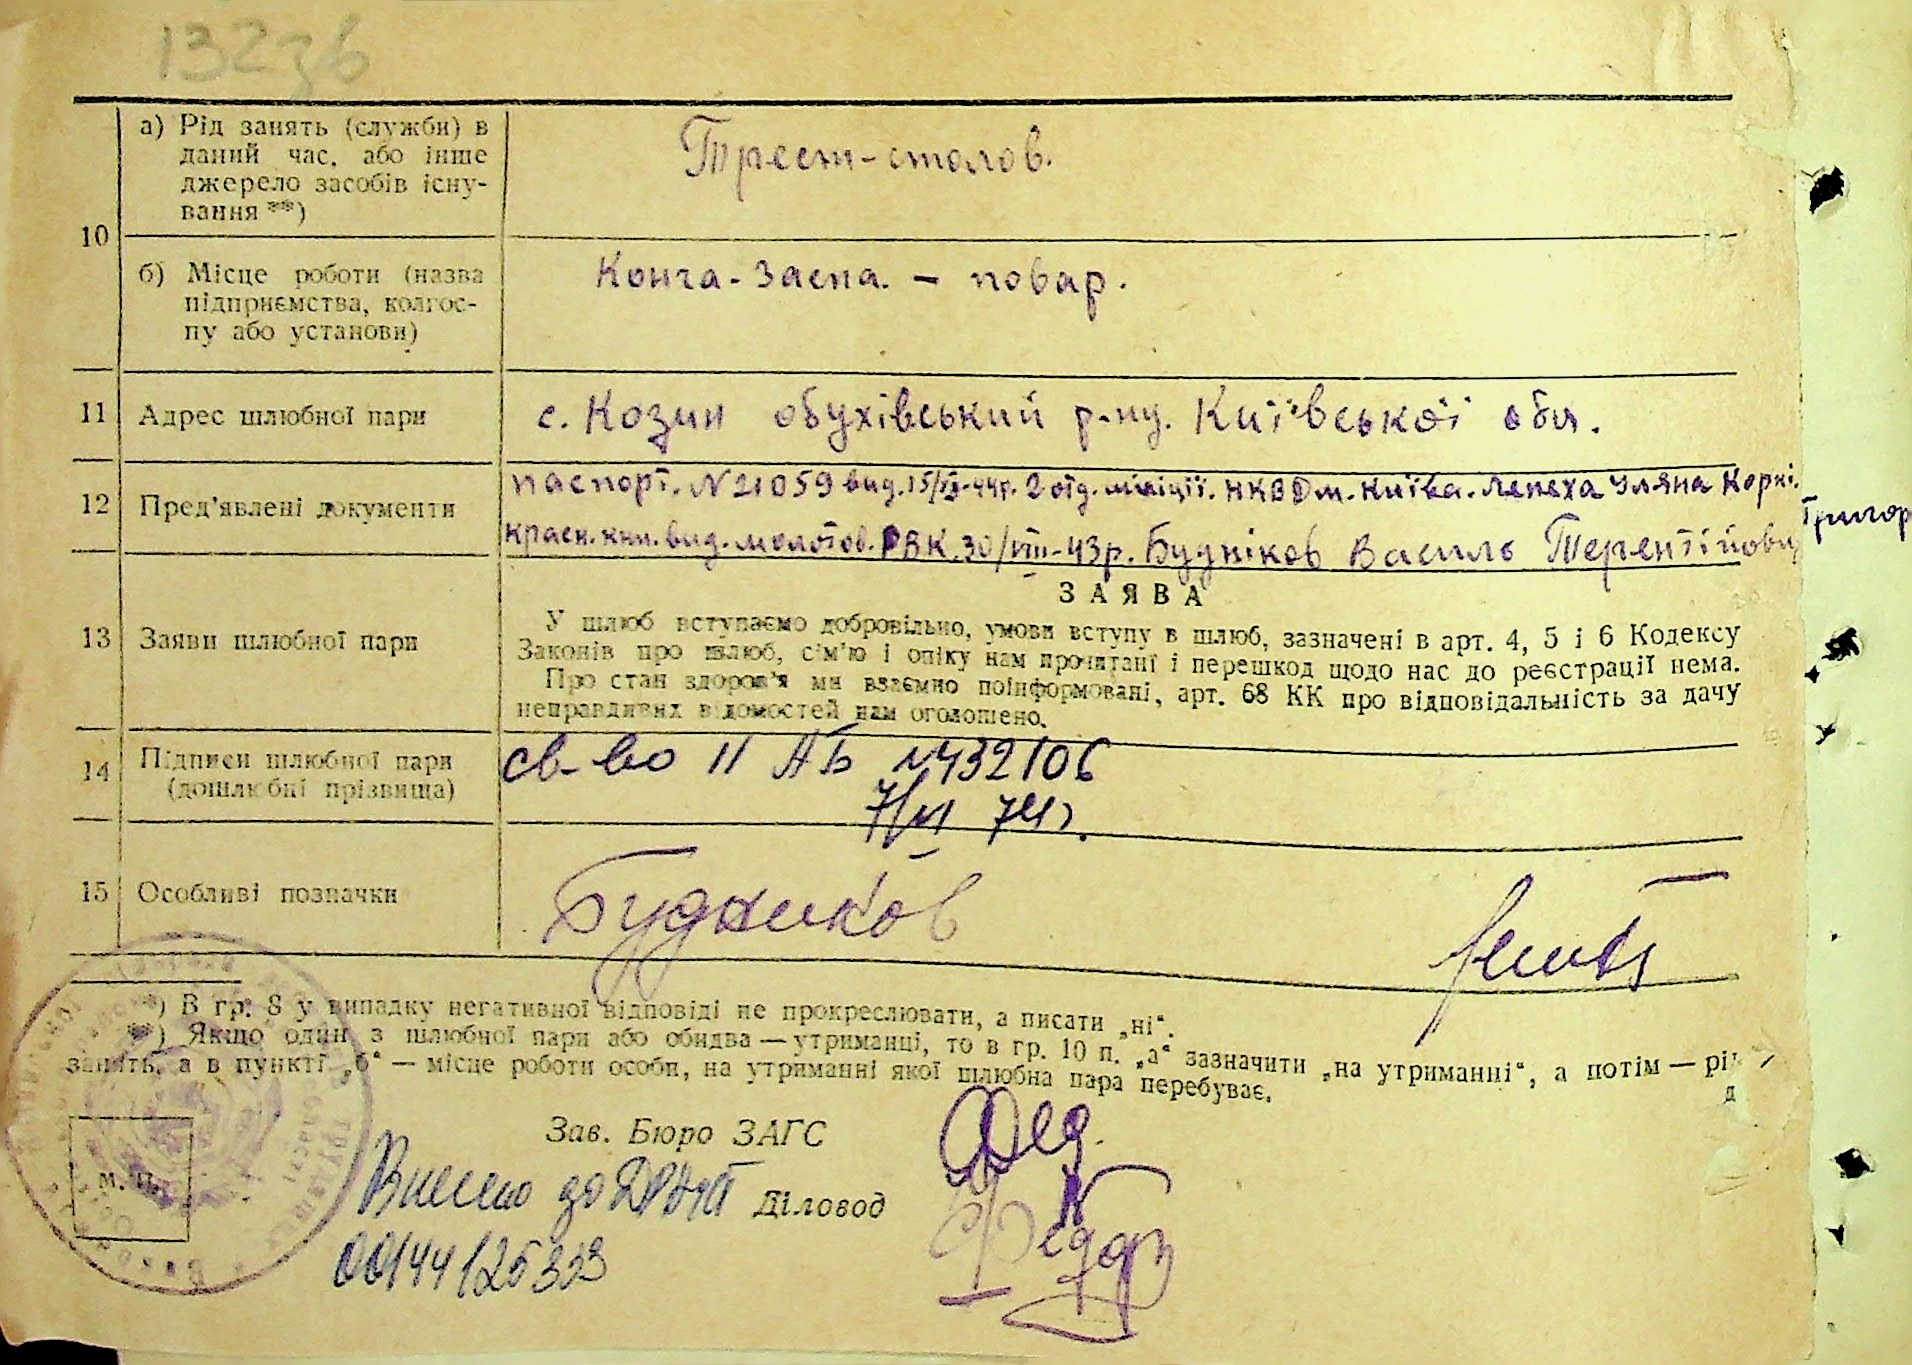 а) Рід занять (служби) в
даний час, або інше
джерело засобів існу-
вання **)
Трест-столов.
10
б) Місце роботи (назва
підприємства, колгос-
пу або установи)
Конча-Заспа. – повар.
11 Адрес шлюбної пари
с. Козин обухівський р-ну. Київської обл.
12 Пред'явлені документи
паспорт. N 21059 вид. 15/VI-44р. 2 отд. міліції. НКВД м. Київа. Лепеха Уляна Корні.
Григор
красн. кни. вид. молотов. РВК. 30/VIII-43р. Будніков Василь Терентійович
13 Заяви шлюбної пари
ЗАЯВА
У шлюб вступаємо добровільно, умови вступу в шлюб, зазначені в арт. 4, 5 і 6 Кодексу
Законів про шлюб, сім'ю і опіку нам прочитані і перешкод щодо нас до реєстрації нема.
Про стан здоров'я ми взаємно поінформовані, арт. 68 КК про відповідальність за дачу
неправдивих відомостей нам оголошено.
14 Підписи шлюбної пари
(дошлюбні прізвища)
св-во II АБ N432106
7/VI 74г.
15 Особливі позначки
Будников
*) В гр. 8 у випадку негативної відповіді не прокреслювати, а писати „ні“.
**) Якщо один з шлюбної пари або обидва — утриманці, то в гр. 10 п. „а“ зазначити „на утриманні“, а потім — рі
занять, а в пункті „б“ — місце роботи особи, на утриманні якої шлюбна пара перебуває.
д
Зав. Бюро ЗАГС
м. п.
Внесено до
Діловод
00144125333